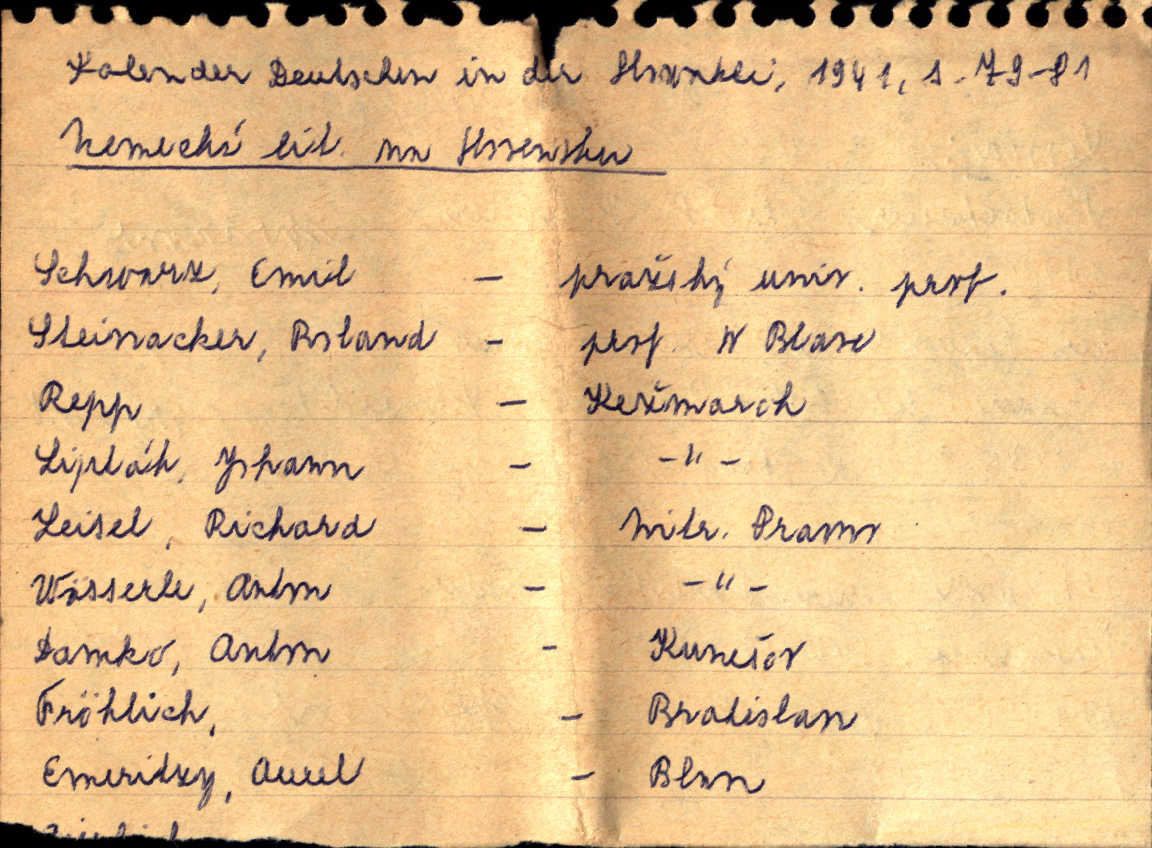 Kalender Deutschen in der Slovakei, 1941, s. 79-81
Nemecká lit. na Slovensku
Schwarz, Emil - pražský univ. prof.
Steinacker, Roland - prof. v Blave
Repp - Kežmarok
Lipták, Johann - " -
Zeisel, Richard - Nitr. Pravno
Wässerle, Anton - " -
Damko, Anton - Kunešov
Fröhlich, - Bratislava
Emeridzy, Aurel - Blava